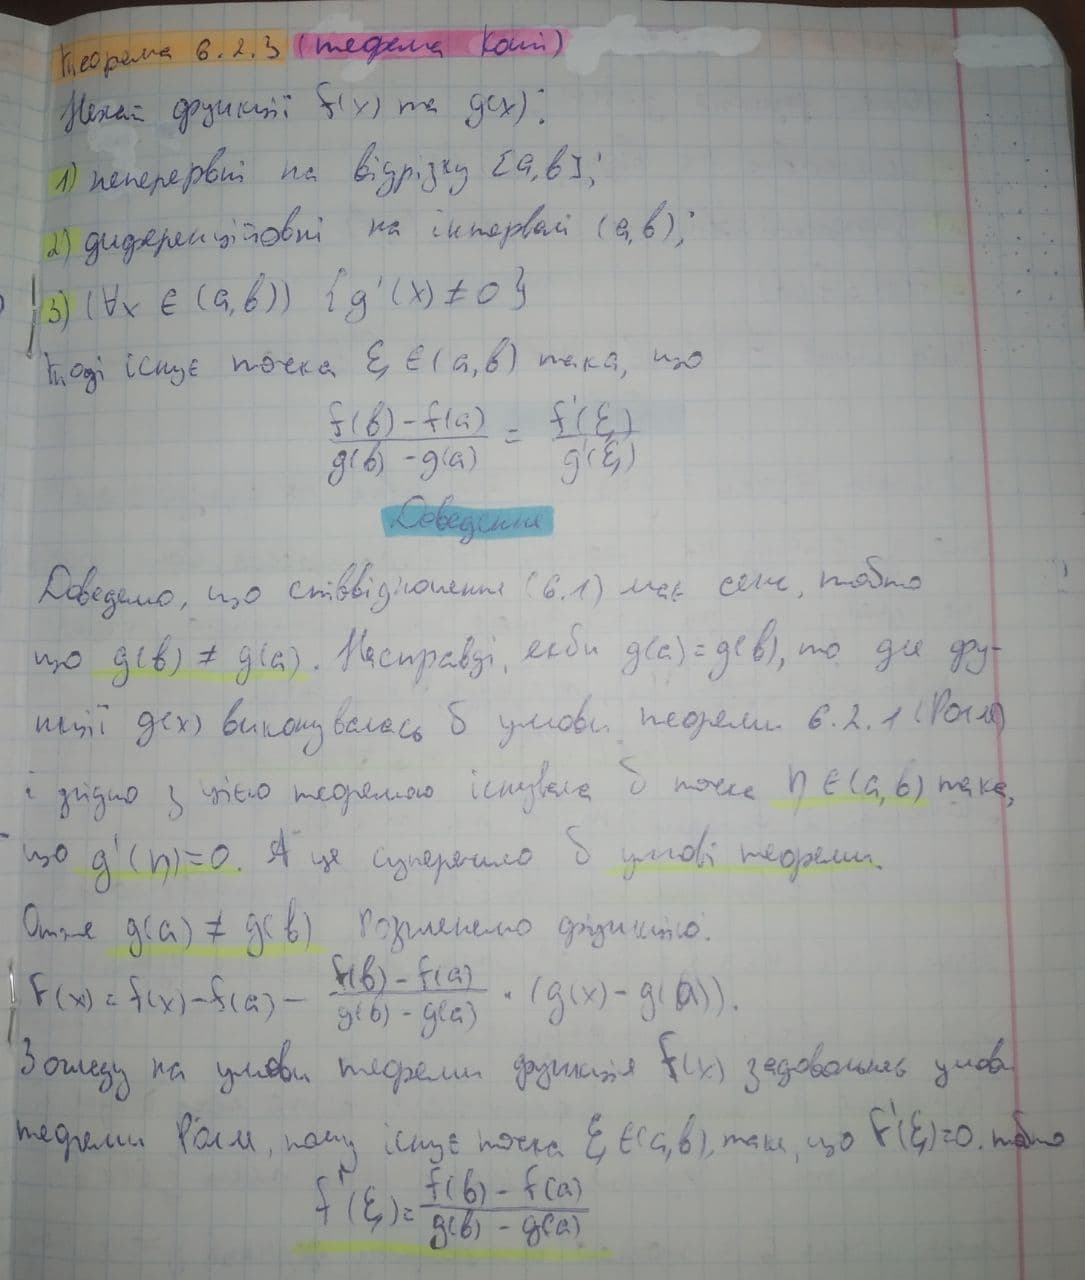 Теорема 6.2.3 (теорема Коші)
Нехай функції f(x) та g(x):
1) неперервні на відрізку [a,b];
2) диференційовні на інтервалі (a,b);
3) (∀x ∈ (a,b)) {g'(x) ≠ 0}
Тоді існує точка ξ ∈ (a,b) така, що
(f(b) - f(a))/(g(b) - g(a)) = f'(ξ)/g'(ξ)
Доведення
Доведемо, що співвідношення (6.1) має сенс, тобто
що g(b) ≠ g(a). Насправді, якби g(a)=g(b), то для фун-
кції g(x) виконувалась б умови теореми 6.2.1 (Ролля)
і згідно з цією теоремою існувала б точка η ∈ (a,b) така,
що g'(η)=0. А це суперечило б умові теореми.
Отже g(a) ≠ g(b) Розглянемо функцію.
F(x) = f(x) - f(a) - (f(b) - f(a))/(g(b) - g(a)) · (g(x) - g(a)).
З огляду на умови теореми функція F(x) задовольняє умови
теореми Ролля, тому існує точка ξ ∈ (a,b), така, що F'(ξ)=0. тобто
f'(ξ) = (f(b) - f(a))/(g(b) - g(a))